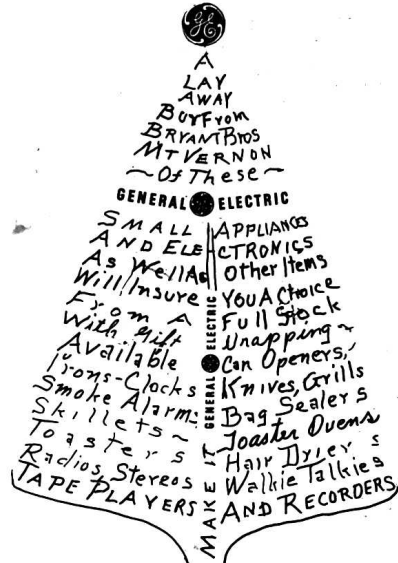 GE
A
LAY
AWAY
Buy From
BRYANT Bros
MT VERNON
~ Of These ~
GENERAL ELECTRIC
SMALL APPLIANCES
AND ELECTRONICS
As Well As Other Items
Will Insure You A Choice
From A Full Stock
With Gift Wrapping ~
Available Can Openers,
Irons-Clocks Knives, Grills
Smoke Alarms Bag Sealers
Skillets ~ Toaster Ovens
Toasters Hair Driers
Radios, Stereos Walkie Talkies
TAPE PLAYERS AND RECORDERS
MAKE IT GENERAL ELECTRIC